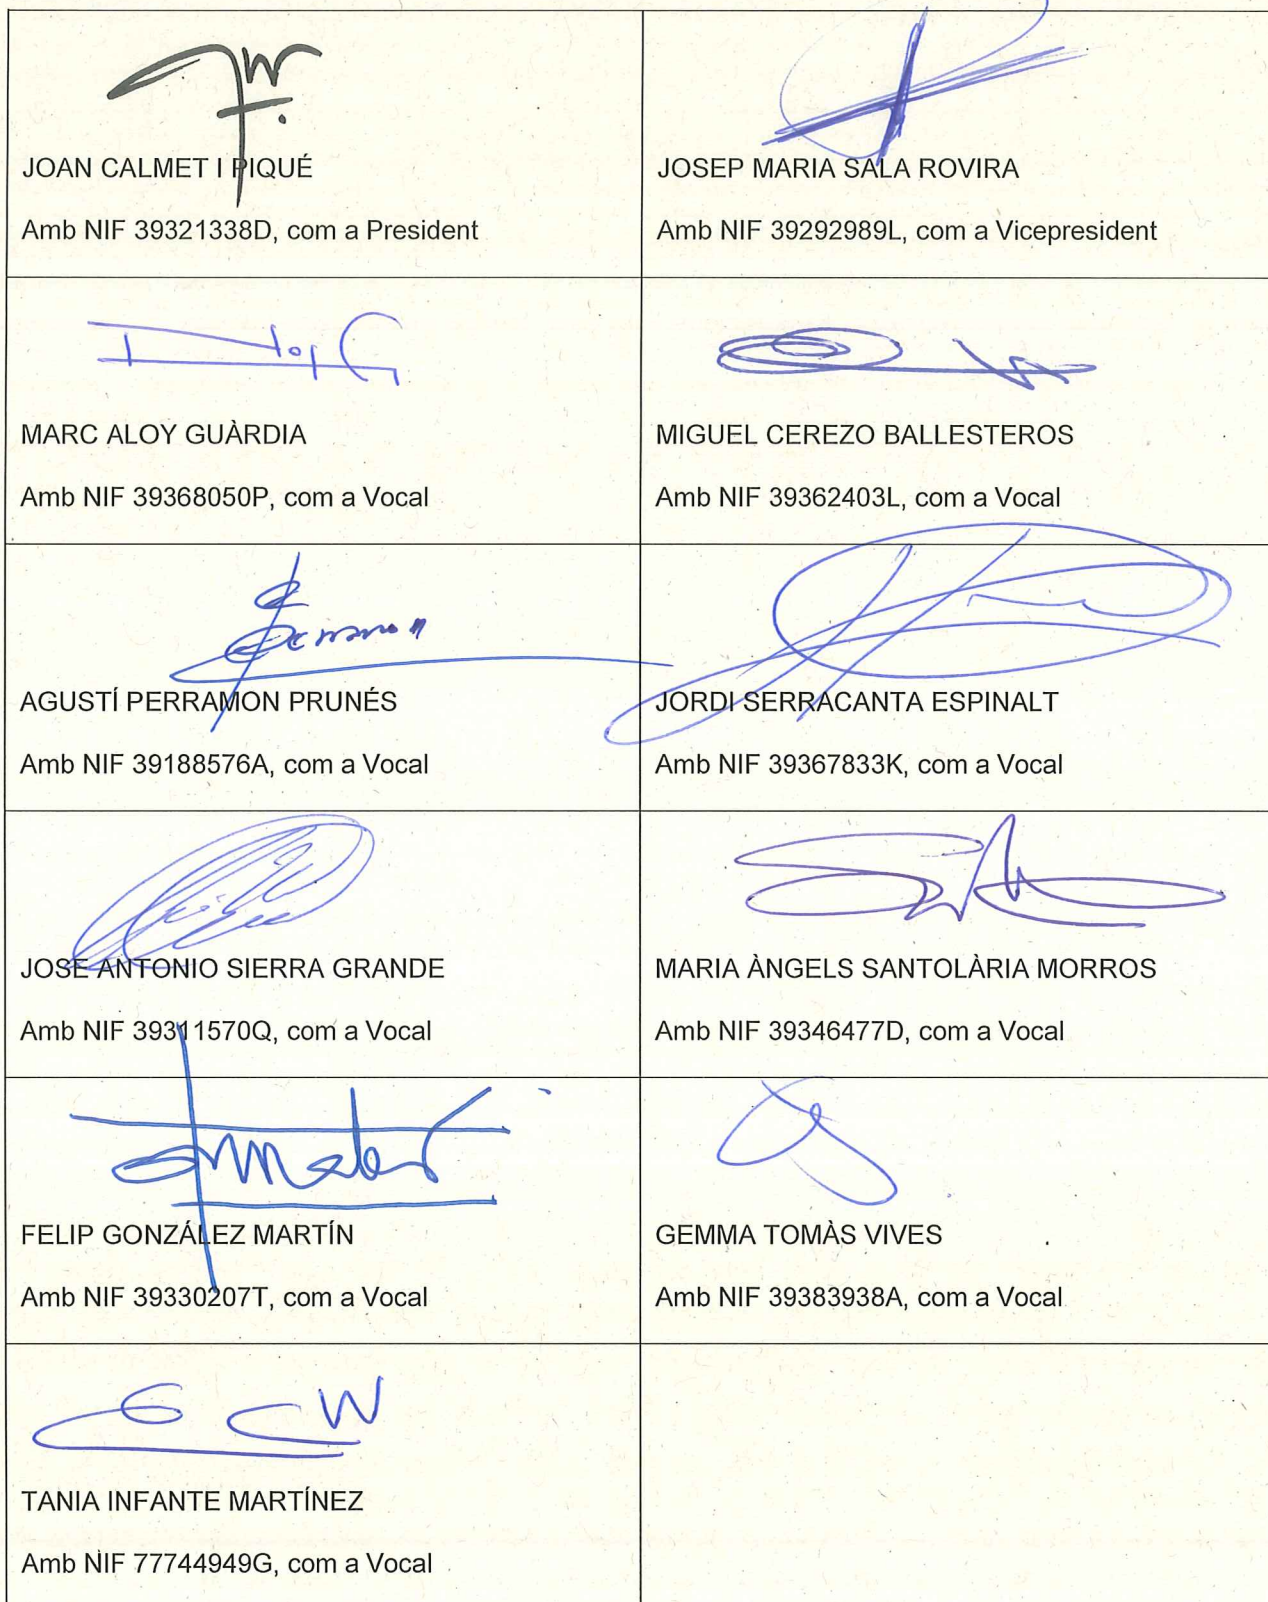 JOAN CALMET I PIQUÉ
Amb NIF 39321338D, com a President
JOSEP MARIA SALA ROVIRA
Amb NIF 39292989L, com a Vicepresident
MARC ALOY GUÀRDIA
Amb NIF 39368050P, com a Vocal
MIGUEL CEREZO BALLESTEROS
Amb NIF 39362403L, com a Vocal
AGUSTÍ PERRAMON PRUNÉS
Amb NIF 39188576A, com a Vocal
JORDI SERRACANTA ESPINALT
Amb NIF 39367833K, com a Vocal
JOSE ANTONIO SIERRA GRANDE
Amb NIF 39311570Q, com a Vocal
MARIA ÀNGELS SANTOLÀRIA MORROS
Amb NIF 39346477D, com a Vocal
FELIP GONZÁLEZ MARTÍN
Amb NIF 39330207T, com a Vocal
GEMMA TOMÀS VIVES
Amb NIF 39383938A, com a Vocal
TANIA INFANTE MARTÍNEZ
Amb NIF 77744949G, com a Vocal